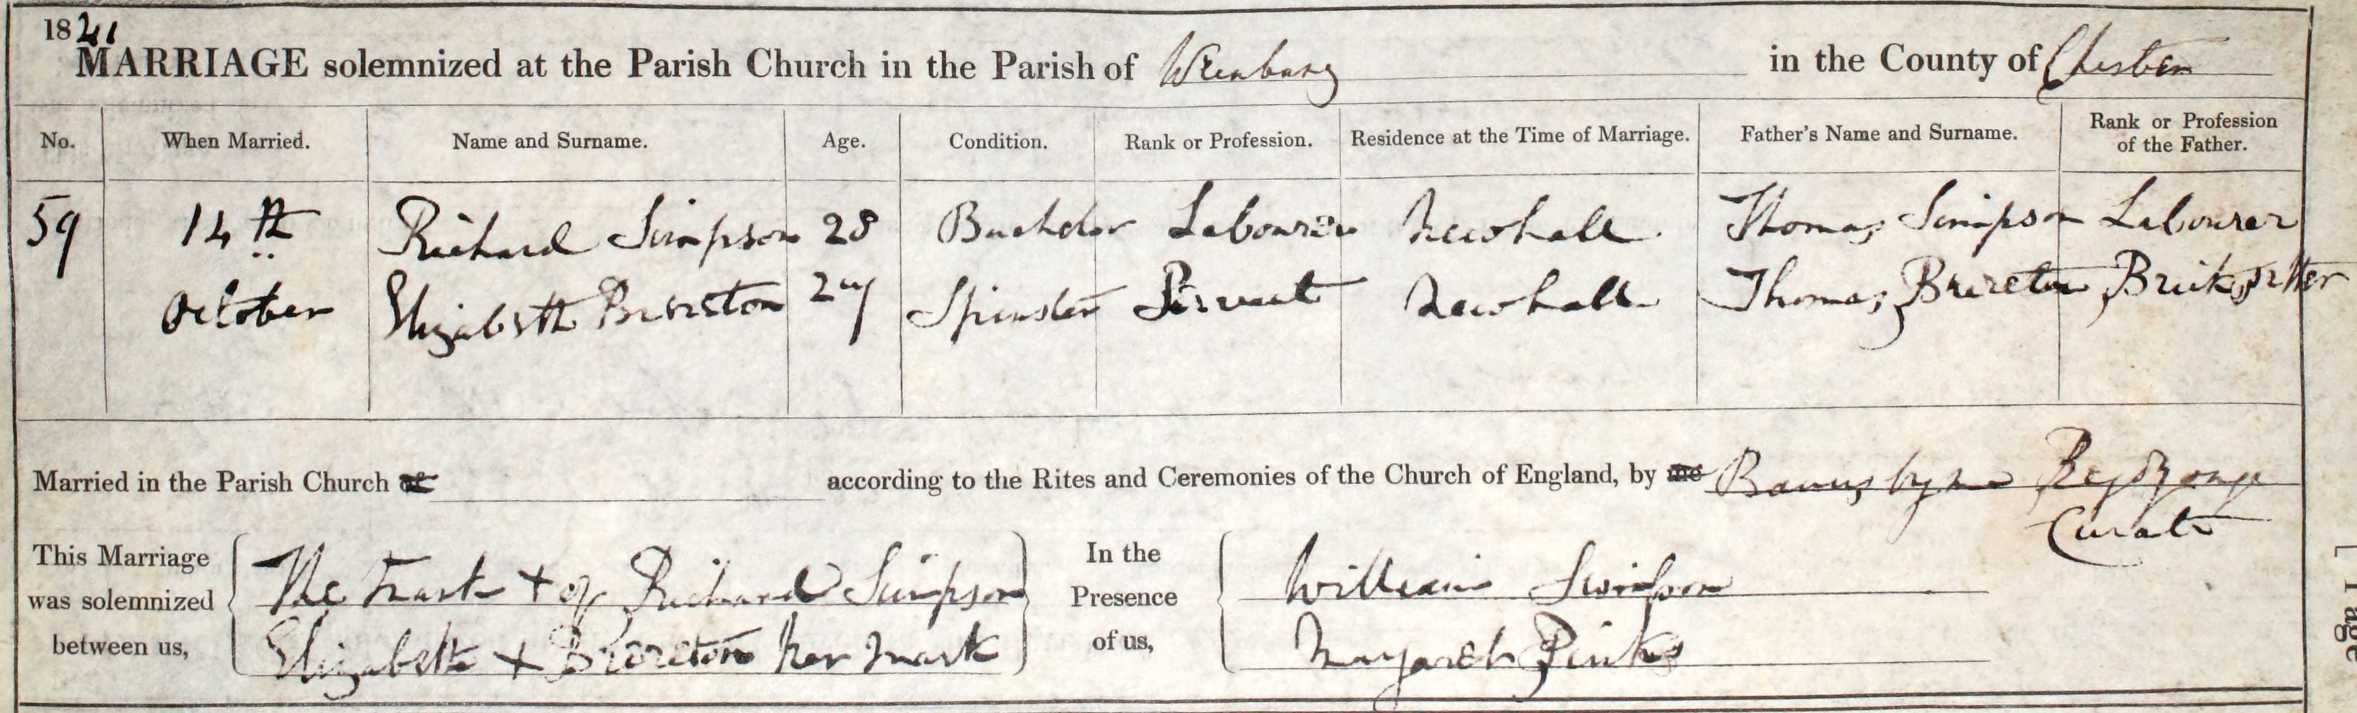 1841
MARRIAGE solemnized at the Parish Church in the Parish of Wrenbury in the County of Chester
No. When Married. Name and Surname. Age. Condition. Rank or Profession. Residence at the Time of Marriage. Father's Name and Surname. Rank or Profession of the Father.
59 14th Richard Simpson 28 Bachelor Labourer Newhall Thomas Simpson Labourer
October Elizabeth Brereton 24 Spinster Servant Newhall Thomas Brereton
Married in the Parish Church according to the Rites and Ceremonies of the Church of England, by Banns by me
Curate
This Marriage was solemnized between us,
The mark + of Richard Simpson
Elizabeth + Brereton her mark
In the Presence of us,
William Simpson
Margaret
[ Page